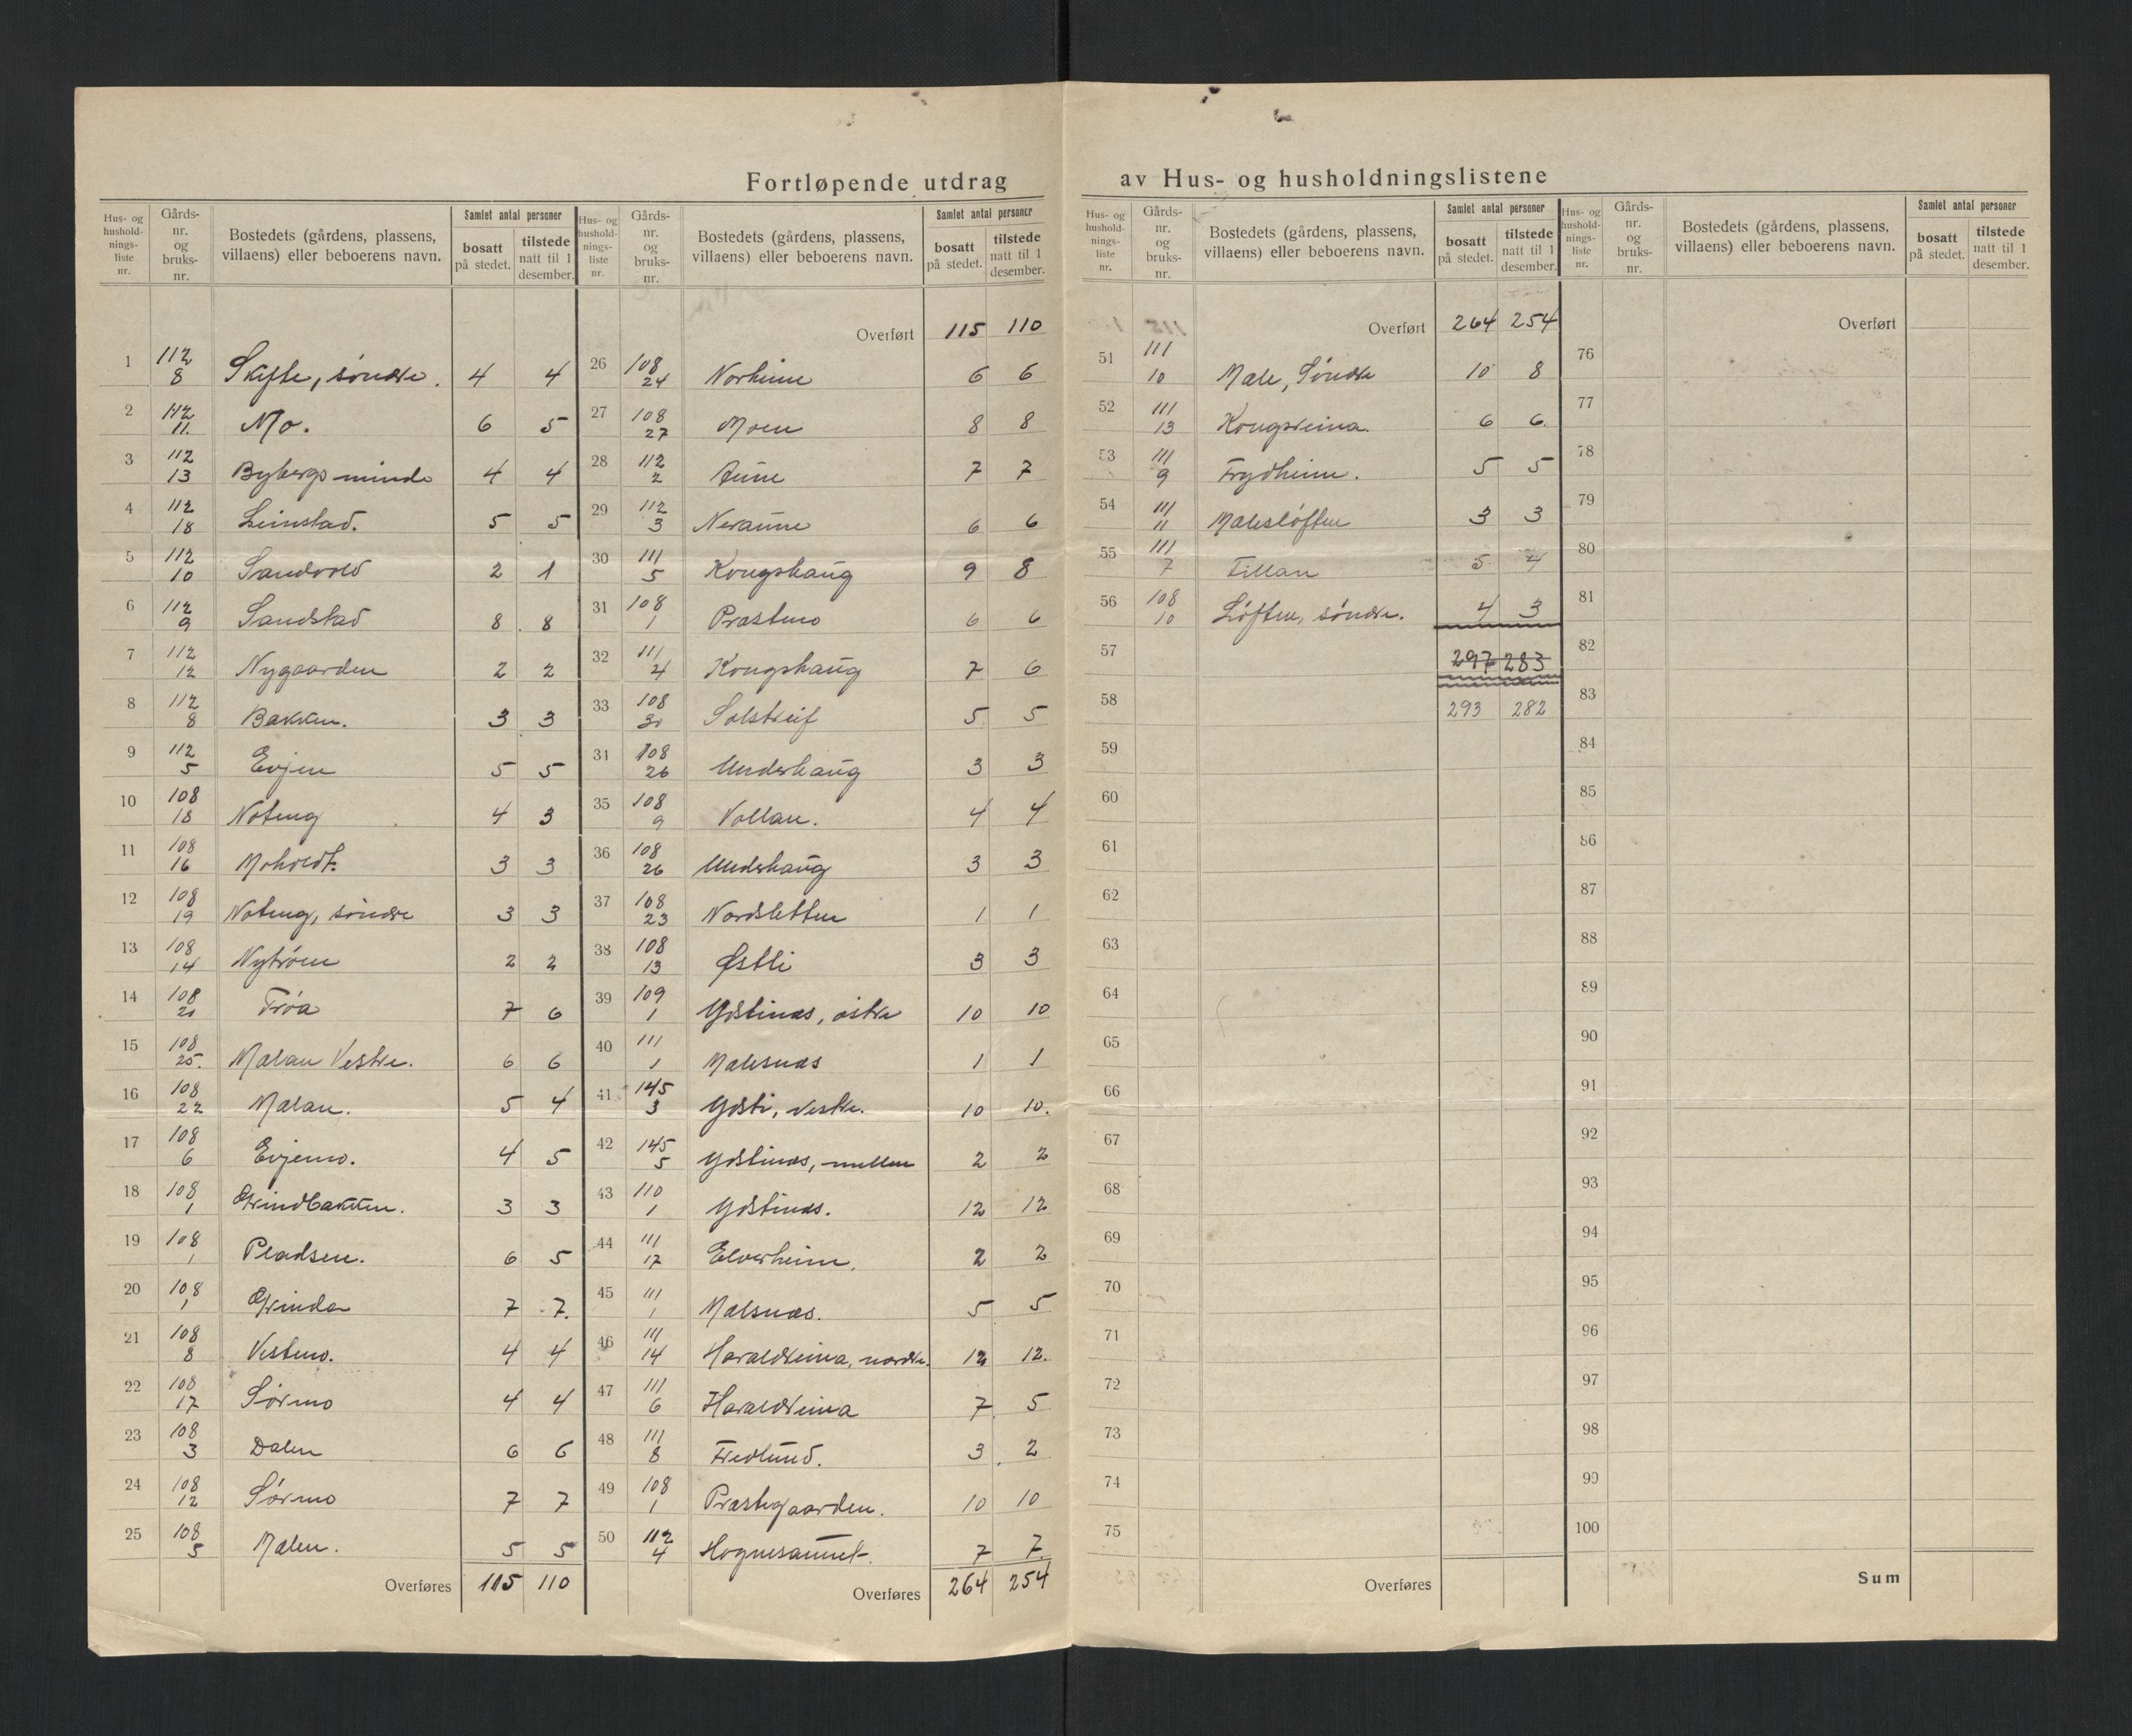 Fortløpende utdrag av Hus- og husholdningslistene
Hus- og hushold-nings-liste nr. | Gårds-nr. og bruks-nr. | Bostedets (gårdens, plassens, villaens) eller beboerens navn. | Samlet antal personer | bosatt på stedet. | tilstede natt til 1 desember.
1 112/8 Skifte, søndre. 4 4
2 112/11. Mo. 6 5
3 112/13 Bybergsminde 4 4
4 112/18 Leinstad. 5 5
5 112/10 Sandvold 2 1
6 112/9 Sandstad 8 8
7 112/12 Nygaarden 2 2
8 112/8 Bakken. 3 3
9 112/5 Evjen 5 5
10 108/18 Noteng 4 3
11 108/16 Moholdt. 3 3
12 108/19 Noteng, søndre 3 3
13 108/14 Nytrøen 2 2
14 108/21 Trøa 7 6
15 108/25. Malan Vestre. 6 6
16 108/22 Malan. 5 4
17 108/6 Evjemo. 4 5
18 108/1 Grindbakken. 3 3
19 108/1 Pladsen. 6 5
20 108/1 Grinda 7 7.
21 108/8 Vestmo. 4 4
22 108/17 Sørmo 4 4
23 108/3 Dalen 6 6
24 108/12 Sørmo 7 7
25 108/5 Malen. 5 5
Overføres 115 110
Hus- og hushold-nings-liste nr. | Gårds-nr. og bruks-nr. | Bostedets (gårdens, plassens, villaens) eller beboerens navn. | Samlet antal personer | bosatt på stedet. | tilstede natt til 1 desember.
Overført 115 110
26 108/24 Norheim 6 6
27 108/27 Moen 8 8
28 112/2 Aune 7 7
29 112/3 Neraune 6 6
30 111/5 Kongshaug 9 8
31 108/1 Prastmo 6 6
32 111/4 Kongshaug 7 6
33 108 Solstreif 5 5
34 108/26 Underhaug 3 3
35 108/9 Vollan. 4 4
36 108/26 Underhaug 3 3
37 108/23 Nordsletten 1 1
38 108/13 Østli 3 3
39 109/1 Ydstines, østre 10 10
40 111/1 Malesnas 1 1
41 145/3 Ydsti, vestre. 10 10.
42 145/5 Ydstines, mellem 2 2
43 110/1 Ydstines. 12 12
44 111/17 Elverheim. 2 2
45 111/1 Malsnas. 5 5
46 111/14 Haraldreina, nordre. 12 12.
47 111/6 Haraldreina 7 5
48 111/8 Fredlund. 3 2
49 108/1 Prastegaarden. 10 10
50 112/4 Hognesaunet. 7 7.
Overføres 264 254
Hus- og hushold-nings-liste nr. | Gårds-nr. og bruks-nr. | Bostedets (gårdens, plassens, villaens) eller beboerens navn. | Samlet antal personer | bosatt på stedet. | tilstede natt til 1 desember.
Overført 264 254
51 111/10 Male, Søndre 10 8
52 111/13 Kongsreina. 6 6.
53 111/9 Frydheim. 5 5
54 111/11 Malesløften 3 3
55 111/7 Tillan 5 4
56 108/10 Løften, søndre. 4 3
57 297 283
58 293 282
59
60
61
62
63
64
65
66
67
68
69
70
71
72
73
74
75
Overføres
Hus- og hushold-nings-liste nr. | Gårds-nr. og bruks-nr. | Bostedets (gårdens, plassens, villaens) eller beboerens navn. | Samlet antal personer | bosatt på stedet. | tilstede natt til 1 desember.
Overført
76
77
78
79
80
81
82
83
84
85
86
87
88
89
90
91
92
93
94
95
96
97
98
99
100
Sum